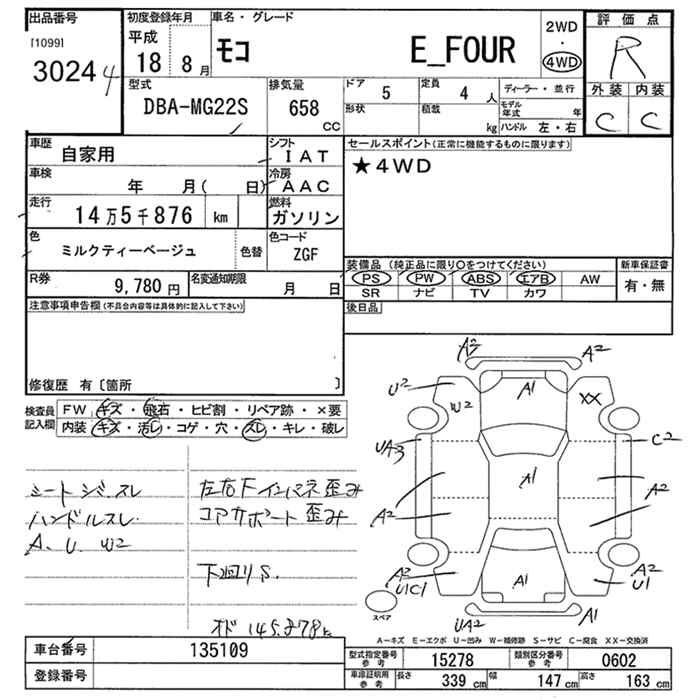 出品番号
[1099]
3024 4
初度登録年月
平成
18 8月
車名・グレード
モコ E_FOUR
2WD
・
4WD
評価点
R
外装 内装
C C
型式
DBA-MG22S
排気量
658
CC
ドア 5
形状
定員 4 人
積載 kg
ディーラー・並行
モデル年式 年
ハンドル 左・右
車歴
自家用
シフト
IAT
車検
年 月( 日)
冷房
AAC
走行
14万5千876 km
燃料
ガソリン
色
ミルクティーベージュ
色替
色コード
ZGF
R券
9,780円
名変通知期限
月 日
セールスポイント(正常に機能するものに限ります)
★4WD
装備品 (純正品に限り○をつけてください)
PS PW ABS エアB AW
SR ナビ TV カワ
新車保証書
有・無
後日品
注意事項申告欄(不具合内容等は具体的に記入して下さい)
修復歴 有〔箇所 〕
検査員
記入欄
FW キズ・飛石・ヒビ割・リペア跡・×要
内装 キズ・汚レ・コゲ・穴・スレ・キレ・破レ
シートシミ スレ
ハンドルスレ
A、U、W2
左右Fインパネ歪み
コアサポート歪み
下廻りS.
オド 145,878k
A2 A2
U2 A1 XX
W2
UA3 C2
A1
A2 A2
A2 A2
U1C1 A1 U1
スペア
UA2 A1
A-キズ E-エクボ U-凹み W-補修跡 S-サビ C-腐食 XX-交換済
車台番号
135109
登録番号
型式指定番号
参考
15278
類別区分番号
参考
0602
車庫証明用
参考
長さ 339 cm
幅 147 cm
高さ 163 cm